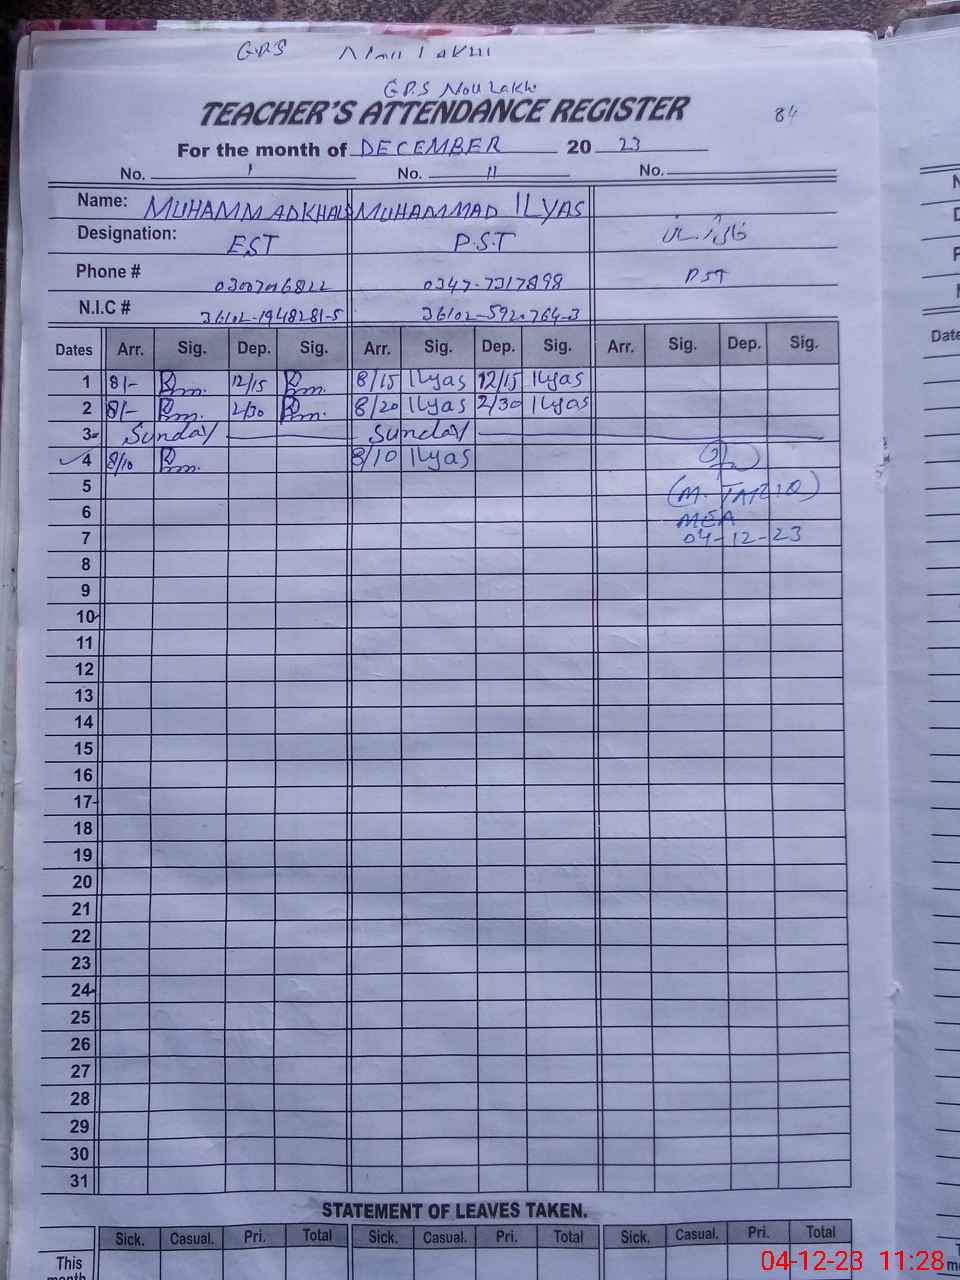 G.P.S Nou Lakhi
G.P.S Nou Lakhi
TEACHER'S ATTENDANCE REGISTER
84
For the month of DECEMBER 20 23
No. I No. II No.
Name: MUHAMMAD MUHAMMAD ILYAS
Designation: EST P.S.T خالی آسامی
Phone # 0347-7317898 PST
N.I.C # 36102-1948281-5
Dates Arr. Sig. Dep. Sig. Arr. Sig. Dep. Sig. Arr. Sig. Dep. Sig.
1 8/- 12/15 8/15 Ilyas 12/15 Ilyas
2 8/- 2/30 8/20 Ilyas 2/30 Ilyas
3 Sunday Sunday
4 8/10 8/10 Ilyas
5 (M. TARIQ)
6 MEA
7 04-12-23
8
9
10
11
12
13
14
15
16
17
18
19
20
21
22
23
24
25
26
27
28
29
30
31
STATEMENT OF LEAVES TAKEN.
Sick. Casual. Pri. Total Sick. Casual. Pri. Total Sick. Casual. Pri. Total
This
month
04-12-23 11:28
Date